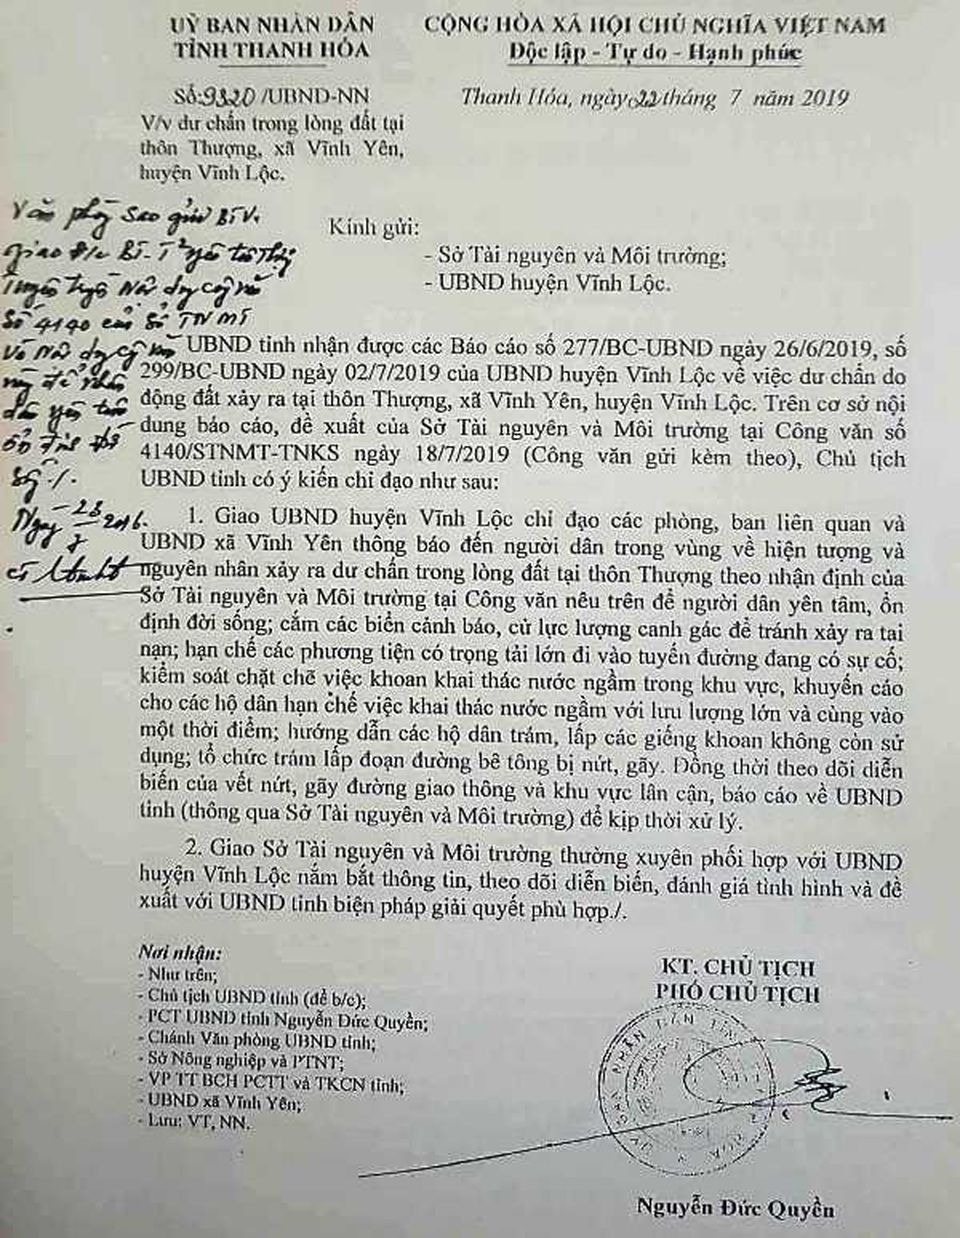 UỶ BAN NHÂN DÂN
TỈNH THANH HÓA
CỘNG HÒA XÃ HỘI CHỦ NGHĨA VIỆT NAM
Độc lập - Tự do - Hạnh phúc
Số:9320/UBND-NN
Thanh Hóa, ngày 22 tháng 7 năm 2019
V/v dư chấn trong lòng đất tại
thôn Thượng, xã Vĩnh Yên,
huyện Vĩnh Lộc.
Kính gửi:
- Sở Tài nguyên và Môi trường;
- UBND huyện Vĩnh Lộc.
Văn phòng sao gửi BTV.
Số 4140 của Sở TNMT
UBND tỉnh nhận được các Báo cáo số 277/BC-UBND ngày 26/6/2019, số
299/BC-UBND ngày 02/7/2019 của UBND huyện Vĩnh Lộc về việc dư chấn do
động đất xảy ra tại thôn Thượng, xã Vĩnh Yên, huyện Vĩnh Lộc. Trên cơ sở nội
dung báo cáo, đề xuất của Sở Tài nguyên và Môi trường tại Công văn số
4140/STNMT-TNKS ngày 18/7/2019 (Công văn gửi kèm theo), Chủ tịch
UBND tỉnh có ý kiến chỉ đạo như sau:
1. Giao UBND huyện Vĩnh Lộc chỉ đạo các phòng, ban liên quan và
UBND xã Vĩnh Yên thông báo đến người dân trong vùng về hiện tượng và
nguyên nhân xảy ra dư chấn trong lòng đất tại thôn Thượng theo nhận định của
Sở Tài nguyên và Môi trường tại Công văn nêu trên để người dân yên tâm, ổn
định đời sống; cắm các biển cảnh báo, cử lực lượng canh gác để tránh xảy ra tai
nạn; hạn chế các phương tiện có trọng tải lớn đi vào tuyến đường đang có sự cố;
kiểm soát chặt chẽ việc khoan khai thác nước ngầm trong khu vực, khuyến cáo
cho các hộ dân hạn chế việc khai thác nước ngầm với lưu lượng lớn và cùng vào
một thời điểm; hướng dẫn các hộ dân trám, lấp các giếng khoan không còn sử
dụng; tổ chức trám lấp đoạn đường bê tông bị nứt, gãy. Đồng thời theo dõi diễn
biến của vết nứt, gãy đường giao thông và khu vực lân cận, báo cáo về UBND
tỉnh (thông qua Sở Tài nguyên và Môi trường) để kịp thời xử lý.
2. Giao Sở Tài nguyên và Môi trường thường xuyên phối hợp với UBND
huyện Vĩnh Lộc nắm bắt thông tin, theo dõi diễn biến, đánh giá tình hình và đề
xuất với UBND tỉnh biện pháp giải quyết phù hợp./.
Nơi nhận:
- Như trên;
- Chủ tịch UBND tỉnh (để b/c);
- PCT UBND tỉnh Nguyễn Đức Quyền;
- Chánh Văn phòng UBND tỉnh;
- Sở Nông nghiệp và PTNT;
- VP TT BCH PCTT và TKCN tỉnh;
- UBND xã Vĩnh Yên;
- Lưu: VT, NN.
KT. CHỦ TỊCH
PHÓ CHỦ TỊCH
Nguyễn Đức Quyền